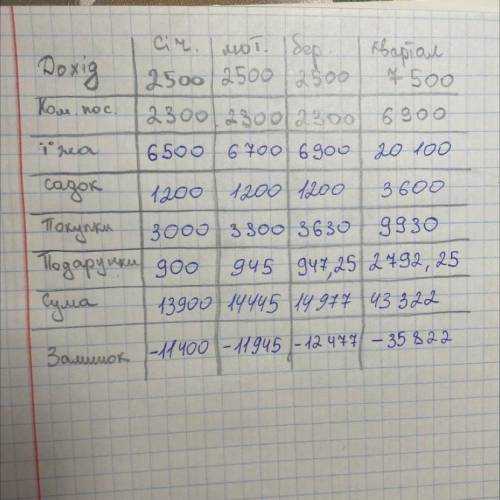 січ. лют. бер. квартал
Дохід 2500 2500 2500 7 500
Ком. пос. 2300 2300 2300 6900
їжа 6500 6700 6900 20 100
садок 1200 1200 1200 3600
Покупки 3000 3300 3630 9930
Подарунки 900 945 947,25 2792,25
Сума 13900 14445 14977 43 322
Залишок -11400 -11945 -12477 -35822